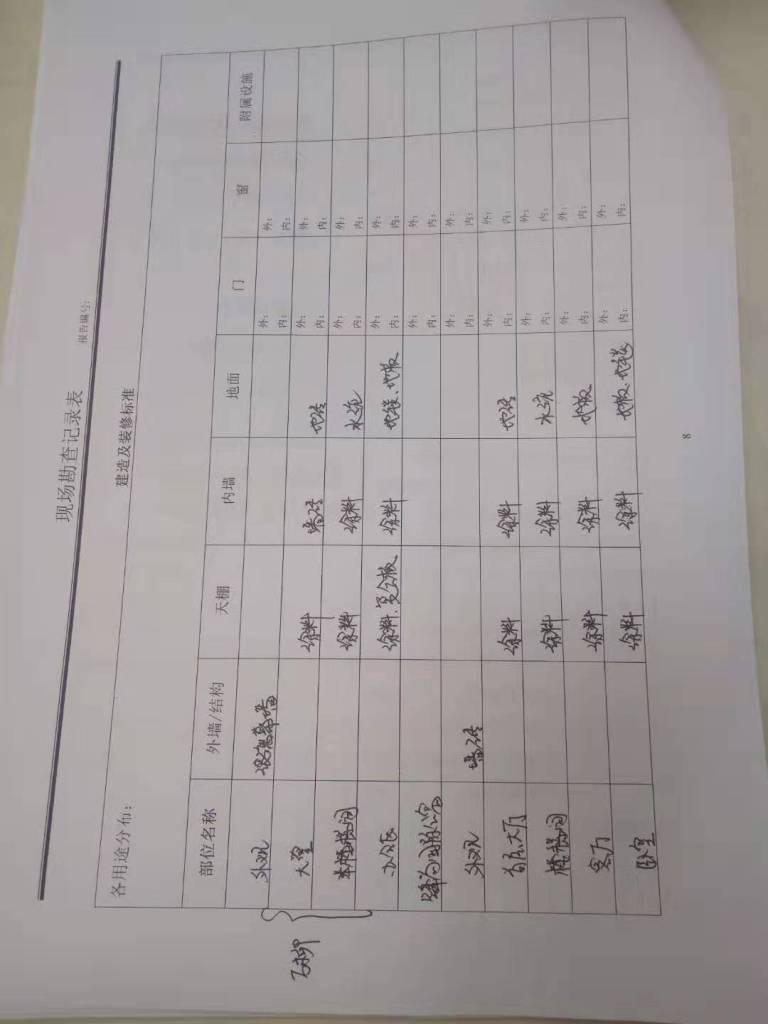 现场勘查记录表
报告编号:
建造及装修标准
各用途分布:
部位名称 外墙/结构 天棚 内墙 地面 门 窗 附属设施
外观 玻璃幕墙 外: 内: 外: 内:
大堂 涂料 墙砖 地砖 外: 内: 外: 内:
楼梯间 涂料 涂料 水泥 外: 内: 外: 内:
办公区 涂料、复合板 涂料 地毯、地板 外: 内: 外: 内:
外: 内: 外: 内:
外观 墙砖 外: 内: 外: 内:
首层大厅 涂料 涂料 地砖 外: 内: 外: 内:
楼梯间 涂料 涂料 水泥 外: 内: 外: 内:
客厅 涂料 涂料 地板 外: 内: 外: 内:
卧室 涂料 涂料 地板、地毯 外: 内: 外: 内:
8